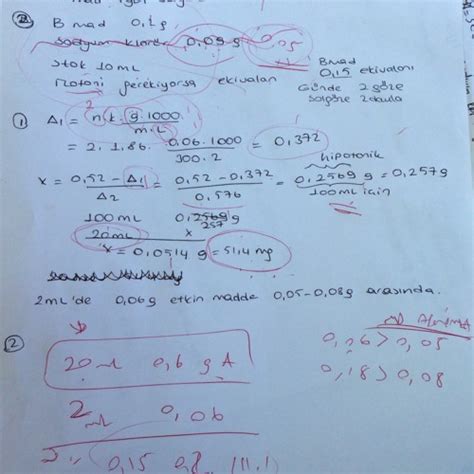 ② B mad 0,2g
sodyum klorür 0,09 g 0,05
Stok 10 mL
İzotoni gerekiyorsa ekivalan
B mad
0,15 ekivalanı
Günde 2 göze
2 damla
① Δ₁ = n k. g. 1000 / m.L
= 2. 1.86. 0,06. 1000 / 300. 2 = 0,372
hipotonik
x = 0,52 - Δ₁ / Δ₂ = 0,52 - 0,372 / 0,576 = 0,2569 g / 100 mL için = 0,257g
100 mL 0,2569 g
257
20mL x
x = 0,0514 g = 51,4 mg
2mL'de 0,06g etkin madde 0,05-0,08g arasında.
②
20 mL 0,6 g A
0,06 > 0,05
0,18 > 0,08
2 mL 0,06
0,15